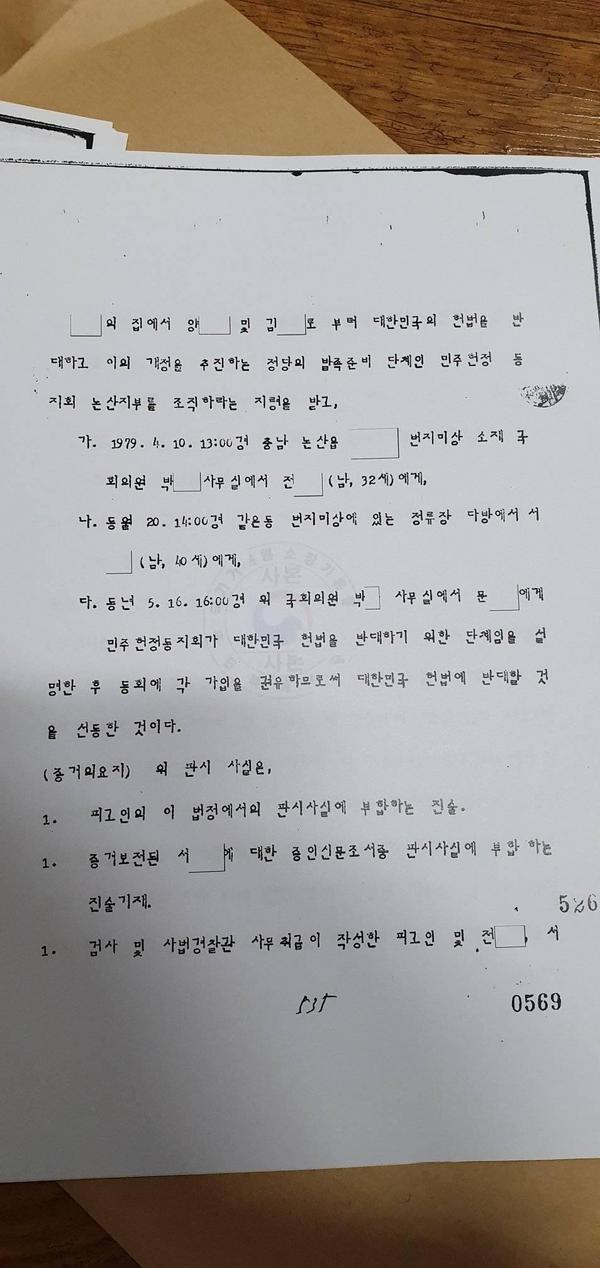 의 집에서 양 및 김 로 부터 대한민국의 헌법을 반
대하고 이의 개정을 추진하는 정당의 발족준비 단계인 민주헌정 동
지회 논산지부를 조직하라는 지령을 받고,
가. 1979. 4. 10. 13:00경 충남 논산읍 번지미상 소재 국
회의원 박 사무실에서 전 (남, 32세)에게,
나. 동월 20. 14:00경 같은동 번지미상에 있는 정류장 다방에서 서
(남, 40세)에게,
다. 동년 5. 16. 16:00경 위 국회의원 박 사무실에서 문 에게
민주헌정동지회가 대한민국 헌법을 반대하기 위한 단계임을 설
명한 후 동회에 각 가입을 권유하므로써 대한민국 헌법에 반대할 것
을 선동한 것이다.
(증거의요지) 위 판시 사실은,
1. 피고인의 이 법정에서의 판시사실에 부합하는 진술.
1. 증거보전된 서 에 대한 증인신문조서중 판시사실에 부합 하는
진술기재.
526
1. 검사 및 사법경찰관 사무취급이 작성한 피고인 및 전 , 서
535
0569
사본
사본